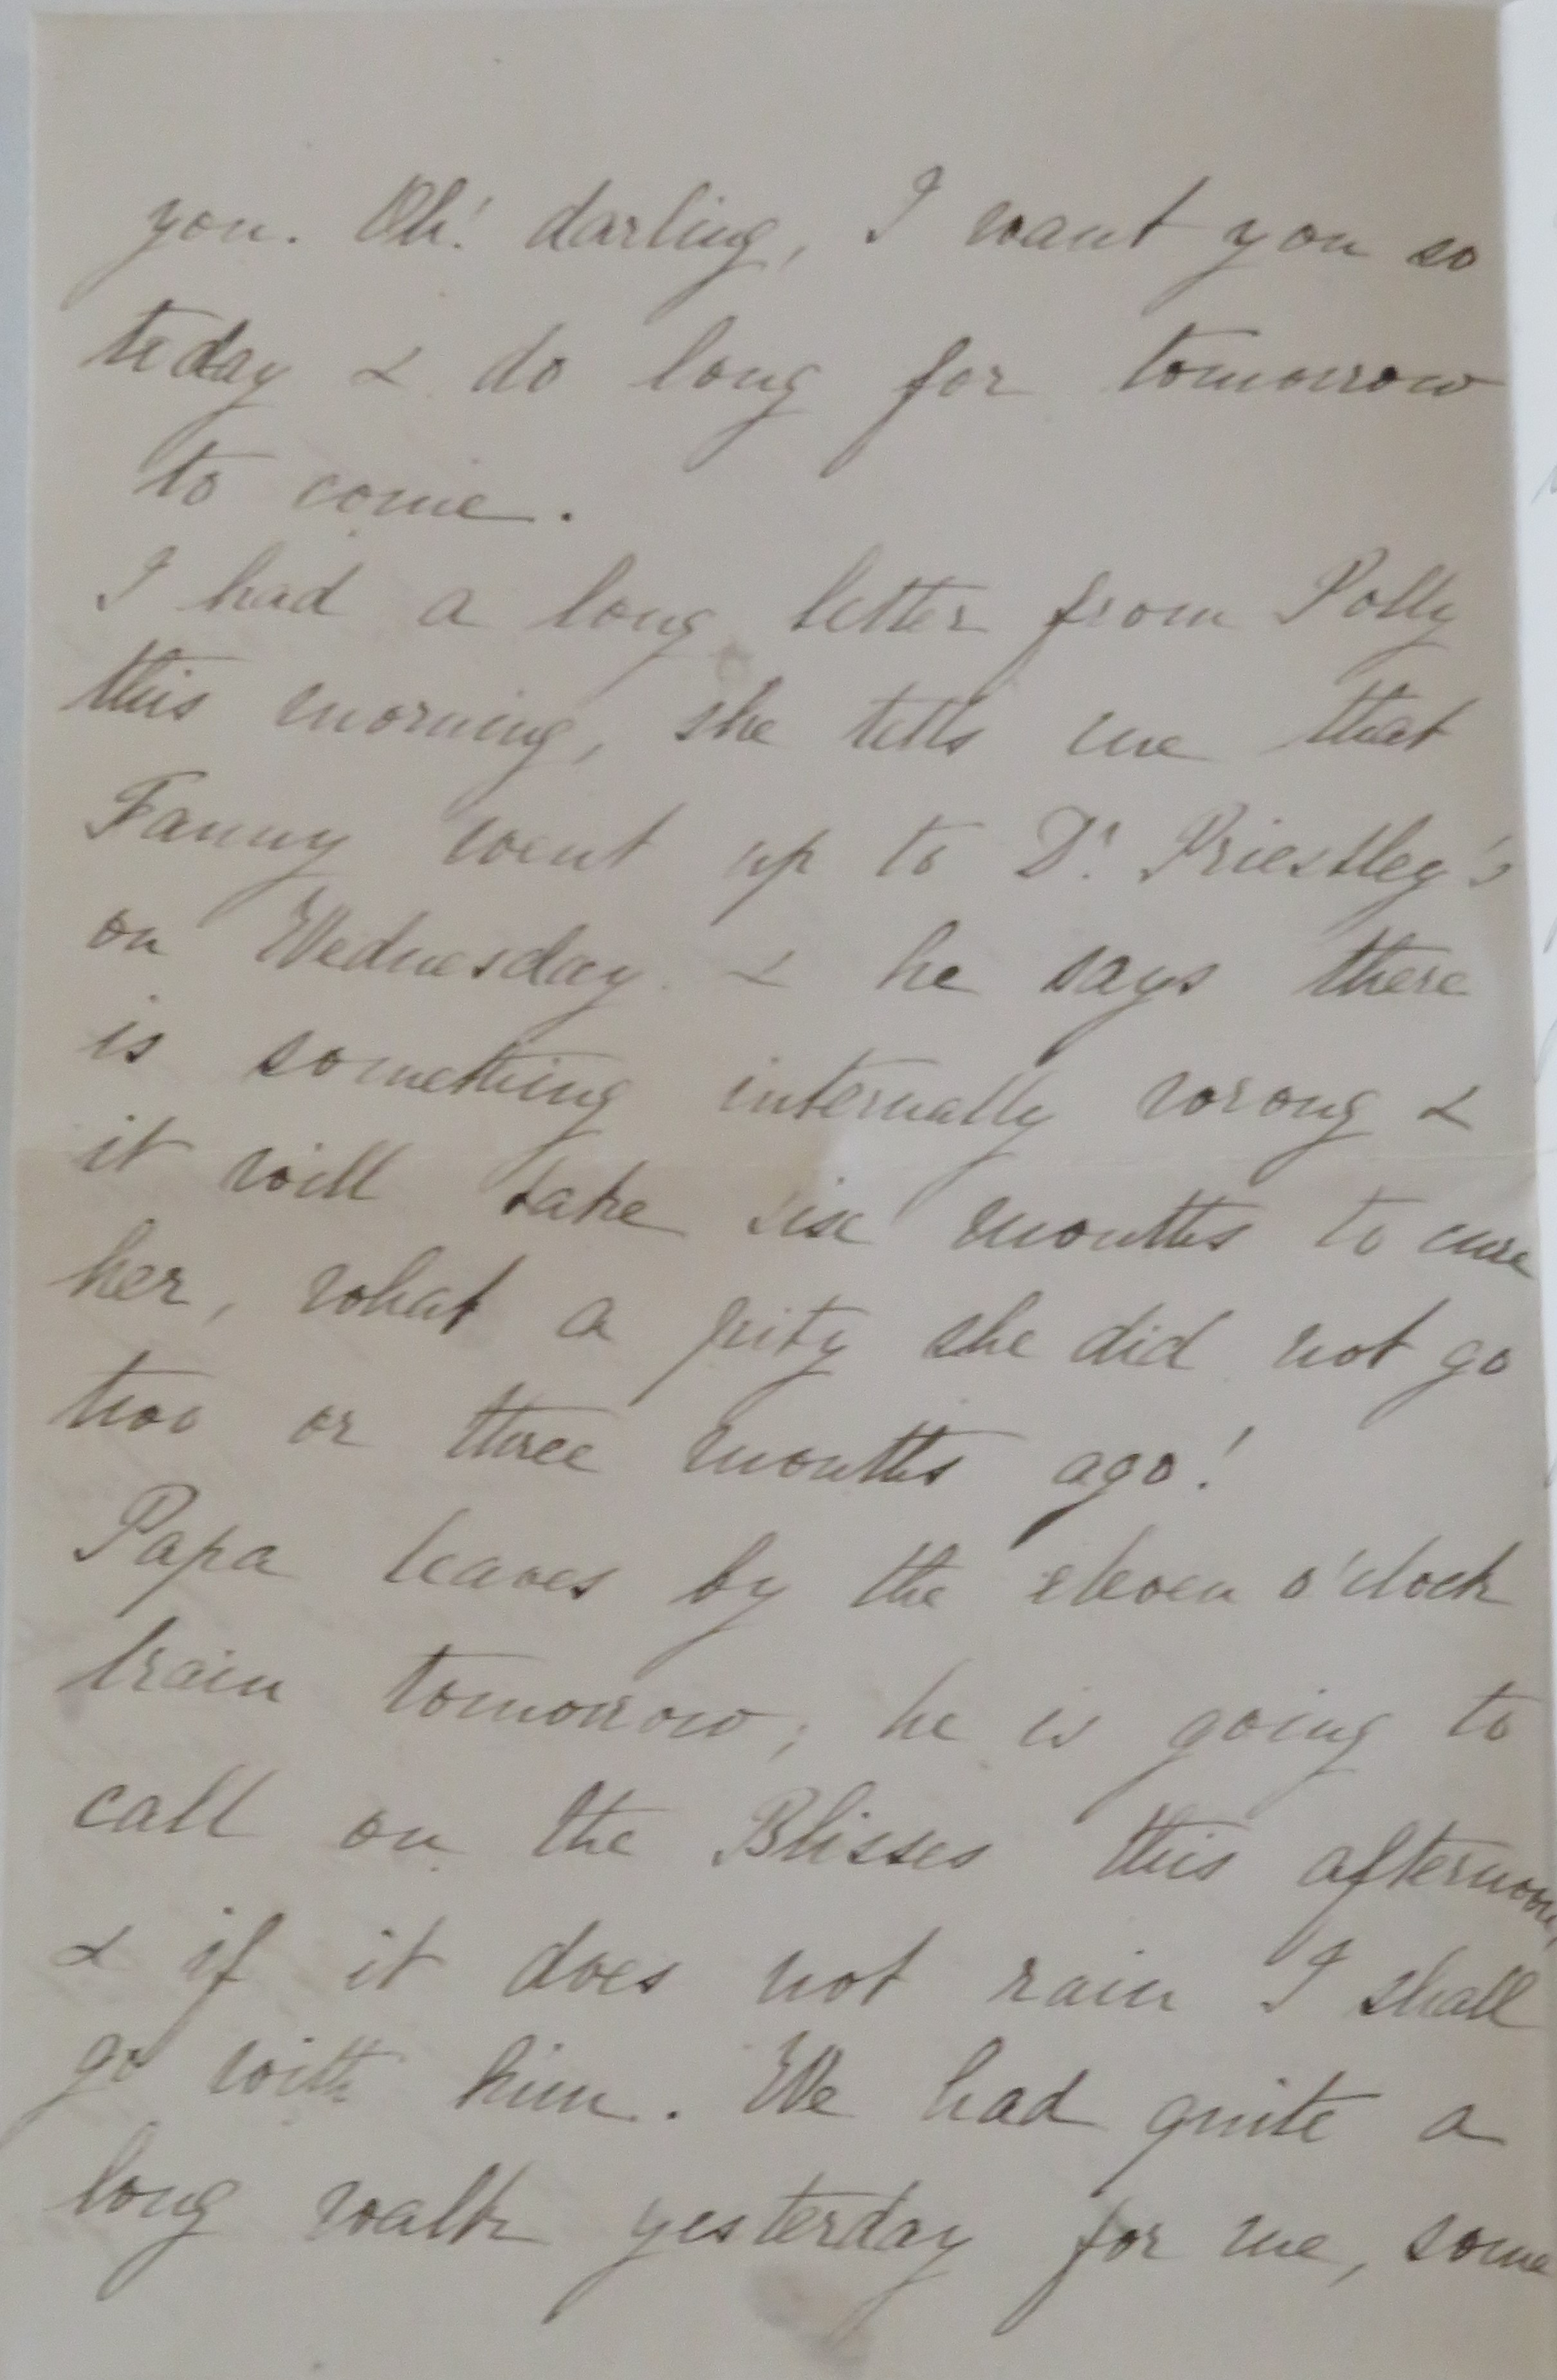 you. Oh! darling, I want you so
today & do long for tomorrow
to come.
I had a long letter from Polly
this morning, she tells me that
Fanny went up to Dr. Priestley's
on Wednesday & he says there
is something internally wrong &
it will take six months to cure
her, what a pity she did not go
two or three months ago!
Papa leaves by the eleven o'clock
train tomorrow; he is going to
call on the Blisses this afternoon,
& if it does not rain I shall
go with him. We had quite a
long walk yesterday for me, some